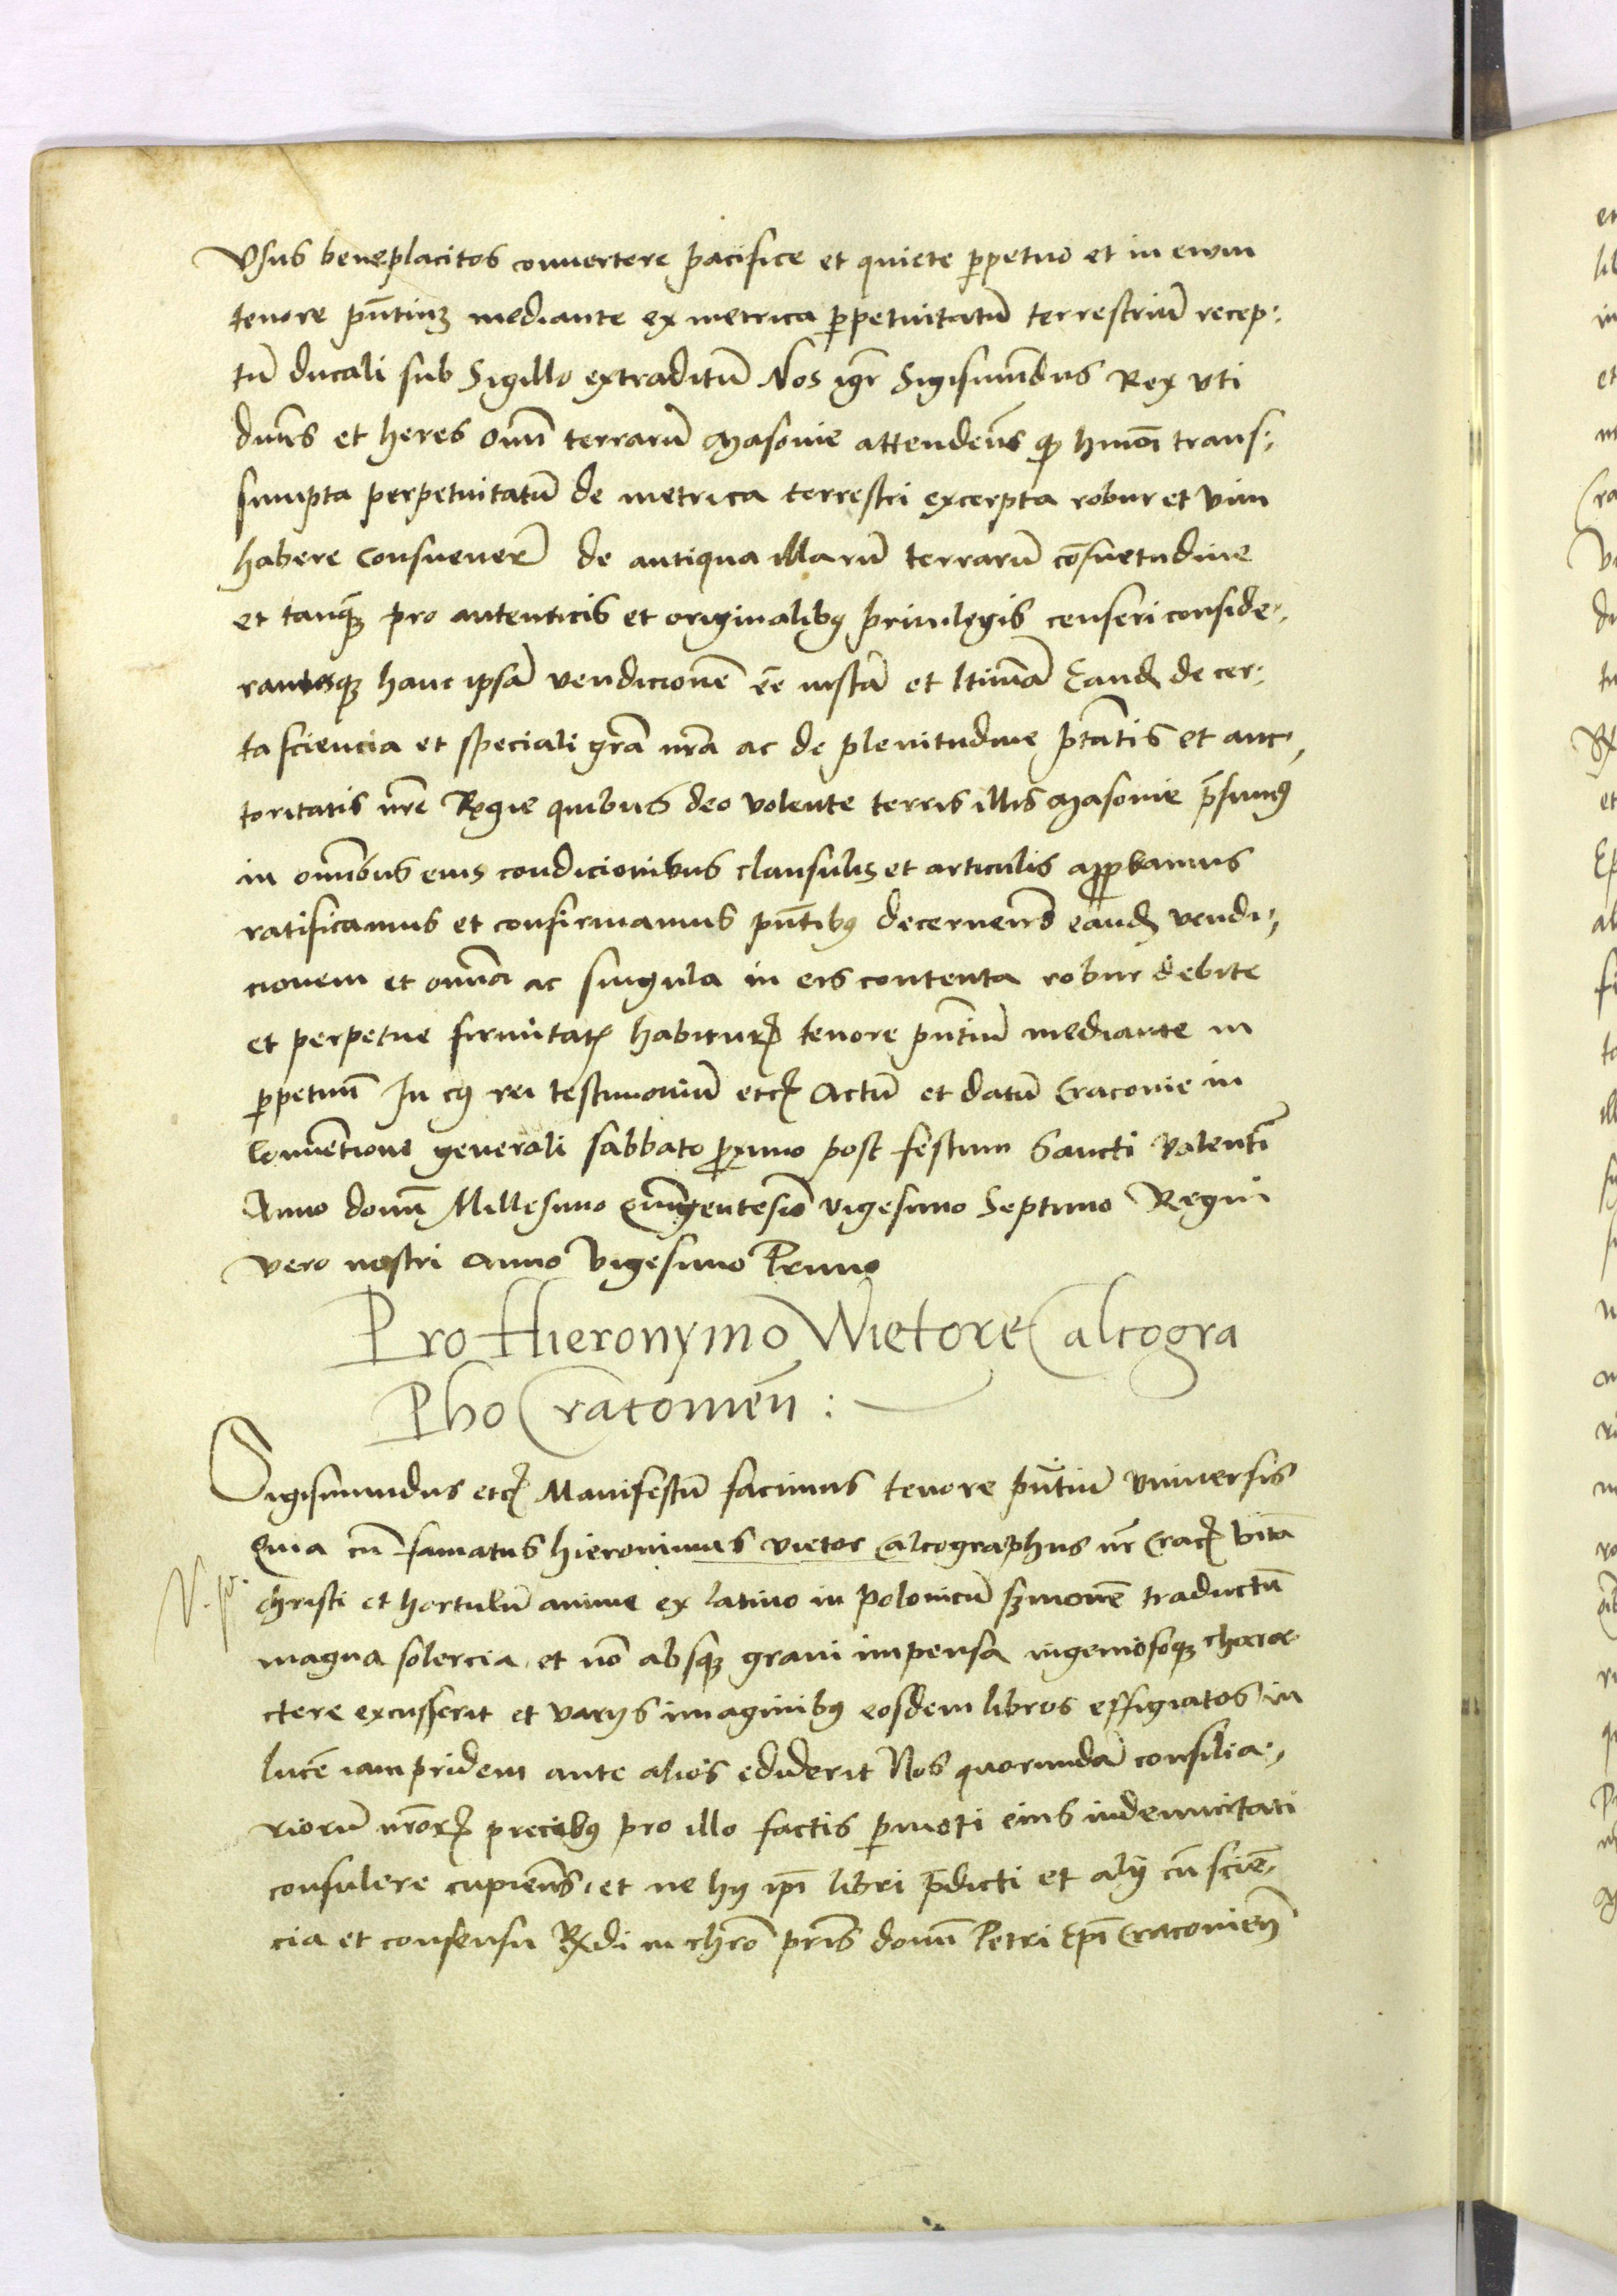 Vsus beneplacitos convertere pacifice et quiete ꝑpetuo et in ewm
tenore pn̄tiuʒ mediante ex metrica ꝑpetuitatū terrestriū recep-
tū ducali sub Sigillo extraditū Nos igr̄ Sigismūdus Rex vti
dn̄us et heres om̄ terrarū Masovie attendeñs ꝙ hmōi trans-
sumpta perpetuitatū de metrica terrestri excerpta robur et vim
habere consuever̄ de antiqua illarū terrarū cōsuetudine
et tanqʒ pro autenticis et originalibꝰ privilegis censeri conside-
rantesqʒ hanc ipsā vendicionē eē iustā et ltīmā Eandꝫ de cer-
ta sciencia et speciali gr̄a nr̄a ac de plenitudine ptātis et auc-
toritatis nr̄e Regie quibus deo volente terris illis Masovie p̄sumꝰ
in om̄ibus eius condicionibus clausulis et articulis approbamus
ratificamus et confirmamus pn̄tibꝰ decerneñs eandꝫ vendi-
cionem et om̄ia ac singula in eis contenta robur debite
et perpetue firmitatꝭ habiturꝫ tenore pn̄tiū mediante in
ꝑpetuū In cꝰ rei testimoniū etcꝫ Actū et datū Cracovie in
Conventione generali sabbato ꝓximo post festum Sancti Valentī
Anno domī Millesimo Quīgentesīo vigesimo Septimo Regni
vero nostri anno Vigesimo Primo
Pro Hieronymo Wietore Calcogra
Pho Cracovieñ :
Sigismundus etcꝫ Manifestū facimus tenore pn̄tiū vniversis
Quia cū famatus Hieronimus vietor Calcographus nr̄ Cracꝫ vitā
Christi et hortulū anime ex latino in polonicū s̄monē traductū
magna solercia et nō absqʒ gravi impensa ingeniosoqʒ chara-
ctere excusserit et varijs imaginibꝰ eosdem libros effigiatos in
lucē iampridem ante alios ediderit Nos quorundā consilia-
riorū nr̄orꝫ precibꝰ pro illo factis ꝑmoti eius indemnitati
consulere cupieñs et ne hij ip̄i libri p̄dicti et alij cū sciē-
cia et consensu Rx̄di in chr̄o pr̄is domī Petri Ep̄i Cracovieñ